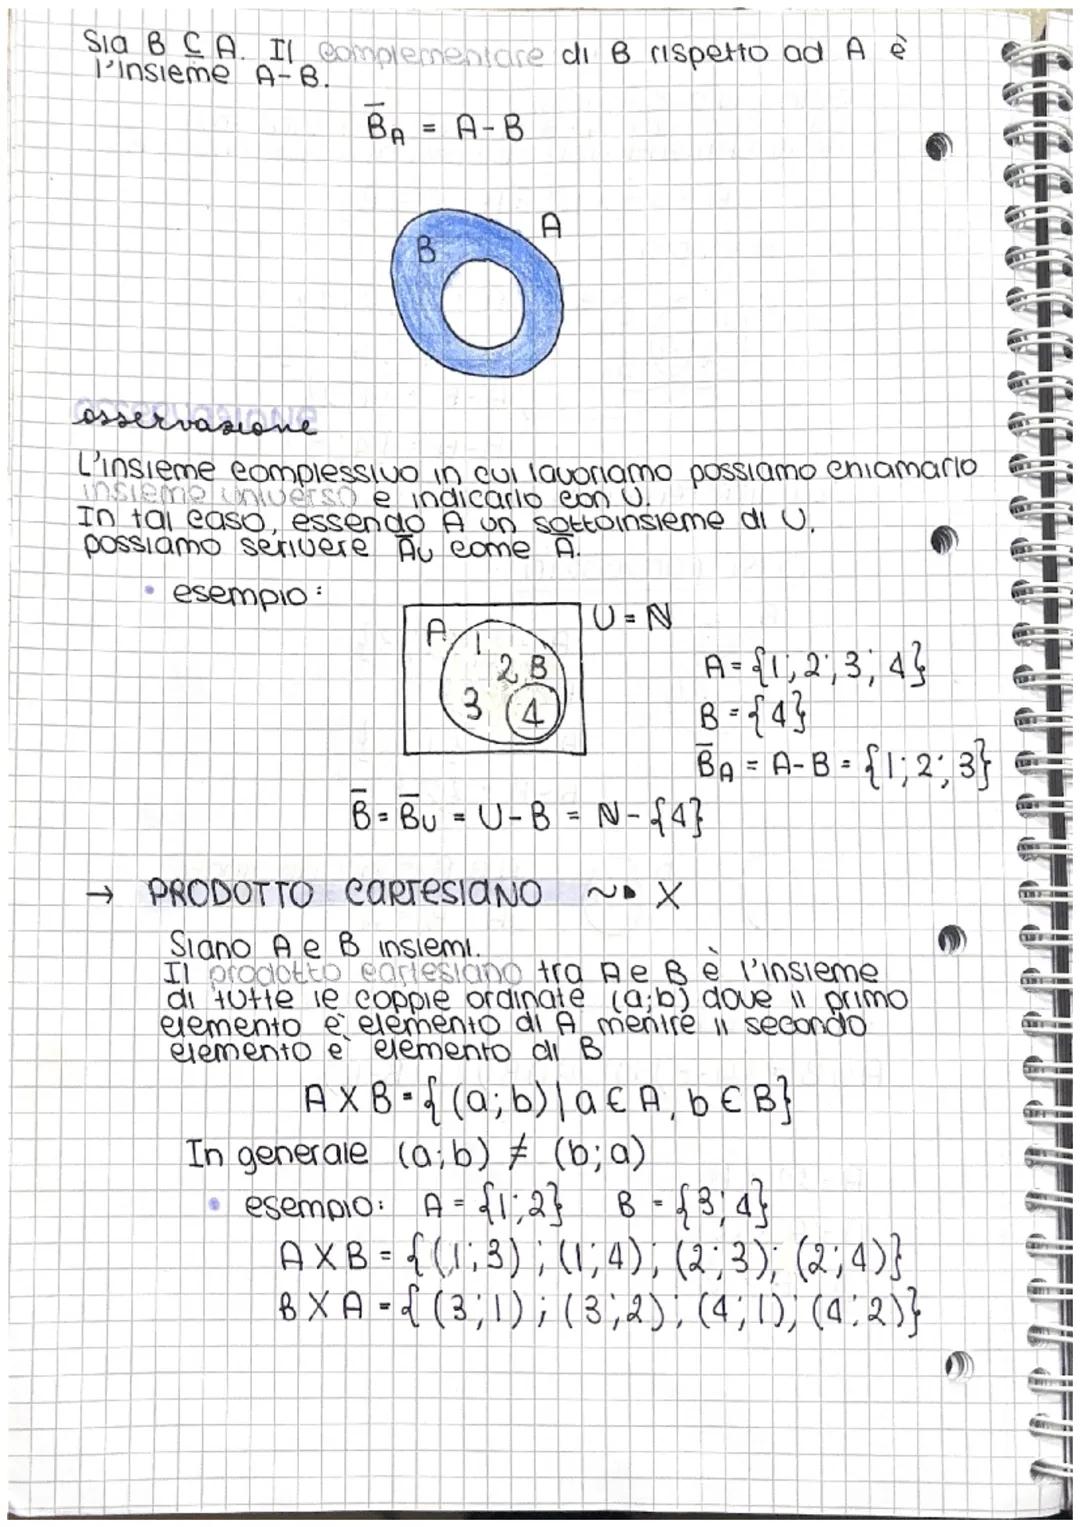 Sia B ⊆ A. Il complementare di B rispetto ad A è
l'insieme A-B.
B̅A = A-B
A
B
osservazione
L'insieme complessivo in cui lavoriamo possiamo chiamarlo
insieme universo e indicarlo con U.
In tal caso, essendo A un sottoinsieme di U.
possiamo scrivere A̅U come A̅.
• esempio:
U = ℕ
A 1
2 B
3 4
A = {1; 2; 3; 4}
B = {4}
B̅A = A-B = {1; 2; 3}
B̅ = B̅U = U-B = ℕ-{4}
→ PRODOTTO CARTESIANO ~▸ X
Siano A e B insiemi.
Il prodotto cartesiano tra A e B è l'insieme
di tutte le coppie ordinate (a;b) dove il primo
elemento è elemento di A mentre il secondo
elemento è elemento di B
A X B = {(a;b) | a ∈ A, b ∈ B}
In generale (a;b) ≠ (b;a)
• esempio: A = {1;2} B = {3;4}
A X B = {(1;3); (1;4); (2;3); (2;4)}
B X A = {(3;1); (3;2); (4;1); (4;2)}